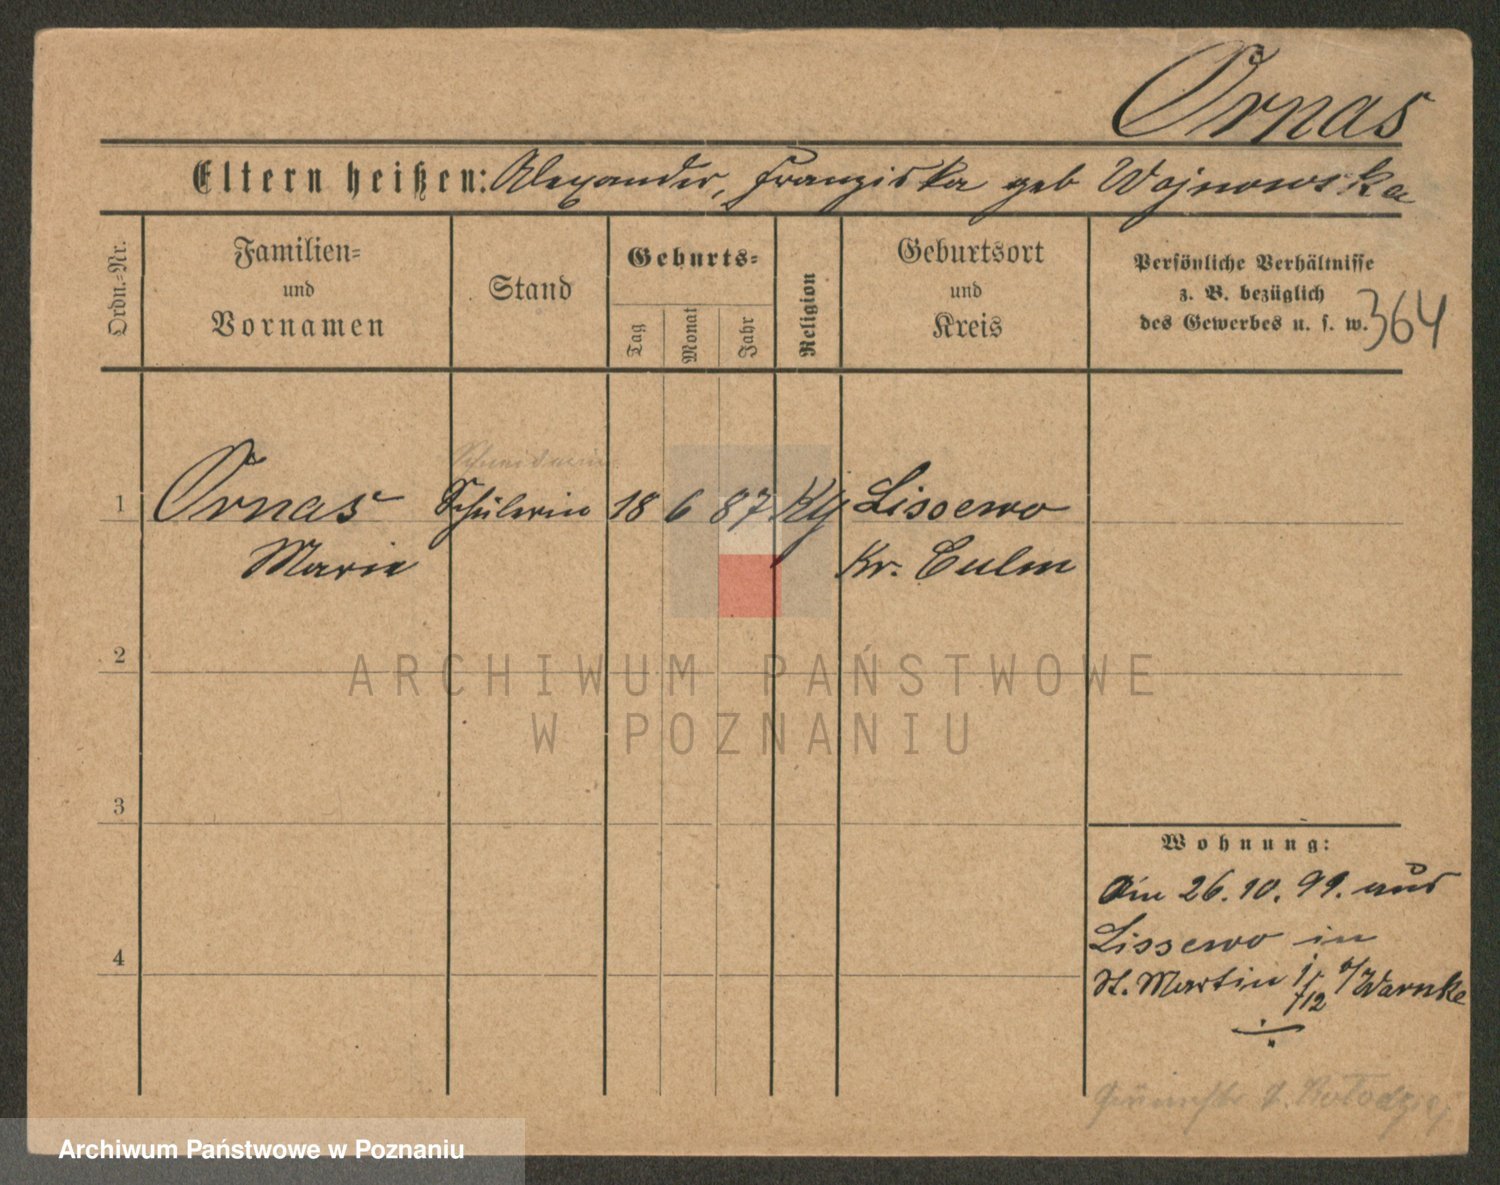 Ornas
Eltern heißen: Alexander, Franziska geb Wojnowska
Ordn.-Nr.
Familien-
und
Vornamen
Stand
Geburts-
Tag
Monat
Jahr
Religion
Geburtsort
und
Kreis
Persönliche Verhältnisse
z. B. bezüglich
des Gewerbes u. s. w.
364
Schneiderin
1 Ornas Schülerin 18 6 87 Kg Lissewo
Marie Kr. Culm
2
ARCHIWUM PAŃSTWOWE
W POZNANIU
3
Wohnung:
Am 26.10.99. aus
Lissewo in
4
St. Martin b/Warnke
÷
Archiwum Państwowe w Poznaniu